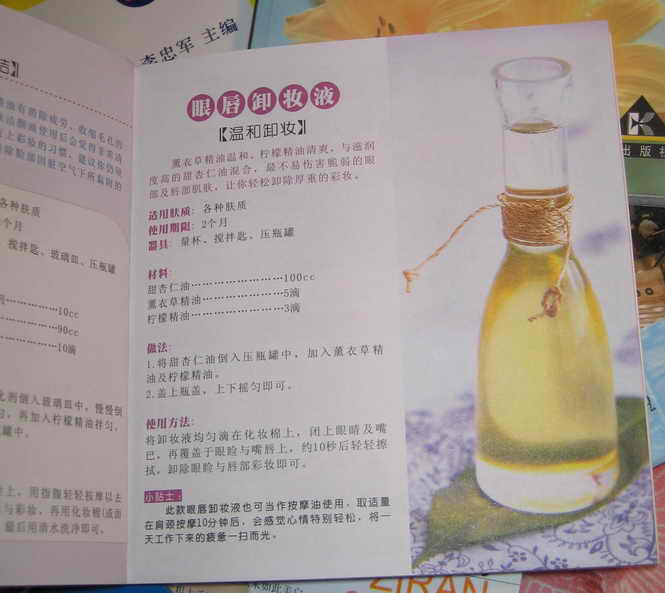 李忠军 主编
洁】
收缩毛孔的
各种肤质
个月
搅拌匙、玻璃皿、压瓶罐
10cc
90cc
10滴
倒入玻璃皿中，慢慢倒
再加入柠檬精油拌匀，
罐中。
用指腹轻轻按摩以去
与彩妆，再用化妆棉
最后用清水洗净即可。
眼唇卸妆液
【温和卸妆】
薰衣草精油温和、柠檬精油清爽，与滋润
度高的甜杏仁油混合，最不易伤害脆弱的眼
部及唇部肌肤，让你轻松卸除厚重的彩妆。
适用肤质：各种肤质
使用期限：2个月
器具：量杯、搅拌匙、压瓶罐
材料：
甜杏仁油……………………100cc
薰衣草精油…………………5滴
柠檬精油……………………3滴
做法：
1.将甜杏仁油倒入压瓶罐中，加入薰衣草精
油及柠檬精油。
2.盖上瓶盖，上下摇匀即可。
使用方法：
将卸妆液均匀滴在化妆棉上，闭上眼睛及嘴
巴，再覆盖于眼睑与嘴唇上，约10秒后轻轻擦
拭，卸除眼睑与唇部彩妆即可。
小贴士：
此款眼唇卸妆液也可当作按摩油使用，取适量
在肩颈按摩10分钟后，会感觉心情特别轻松，将一
天工作下来的疲惫一扫而光。
K
出版社
ZIRAN